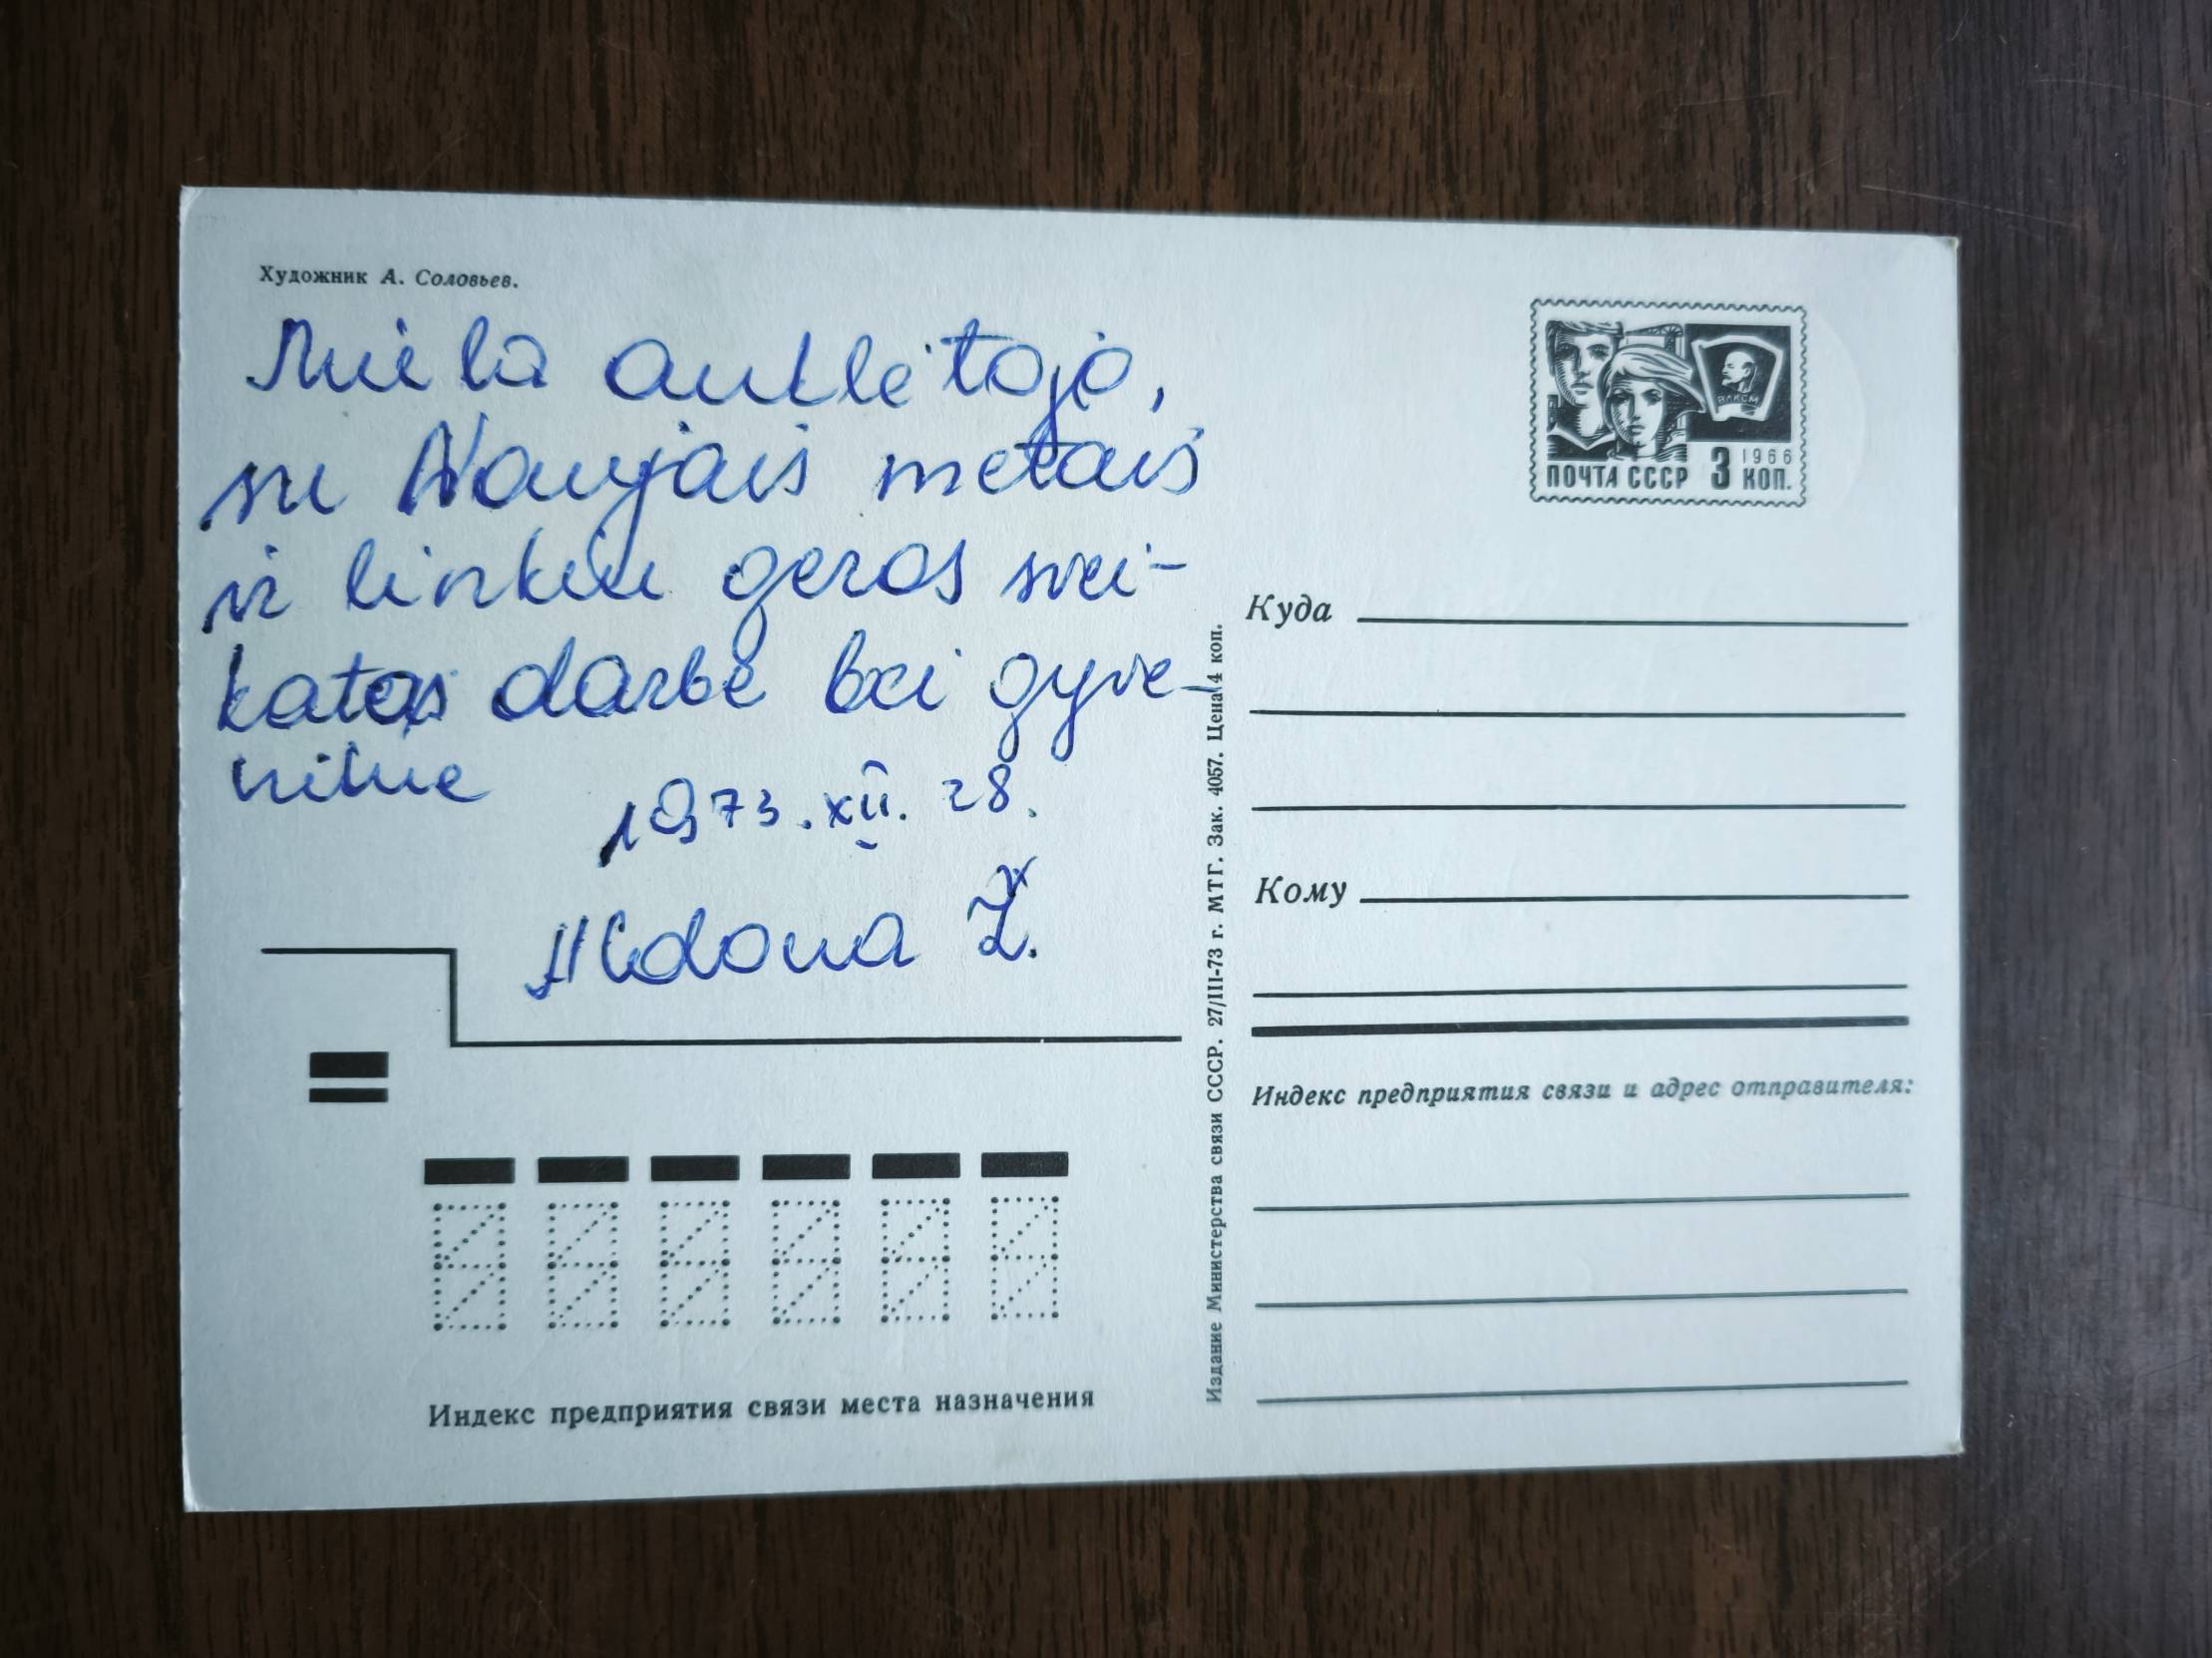 Художник А. Соловьев.
Miela auklėtoja,
su Naujais metais
ir linkiu geros svei-
katos darbe bei gyve-
nime
1973.XII.28.
Aldona Ž.
Индекс предприятия связи места назначения
Издание Министерства связи СССР. 27/III-73 г. МТГ. Зак. 4057. Цена 4 коп.
ВЛКСМ
1966
ПОЧТА СССР 3 КОП.
Куда
Кому
Индекс предприятия связи и адрес отправителя: